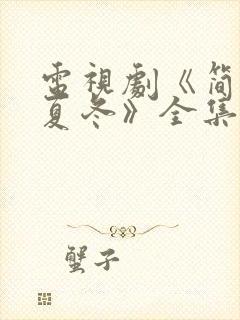 電視劇《简
夏冬》全集
蟹子